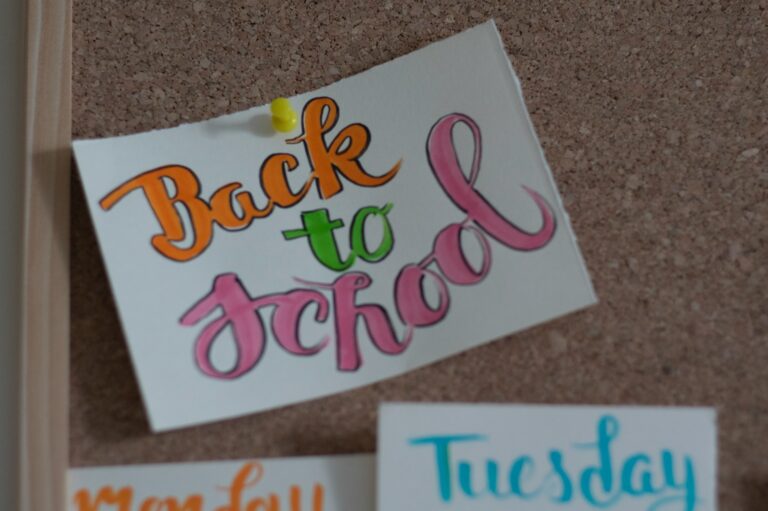 Back
to
school
monday
Tuesday